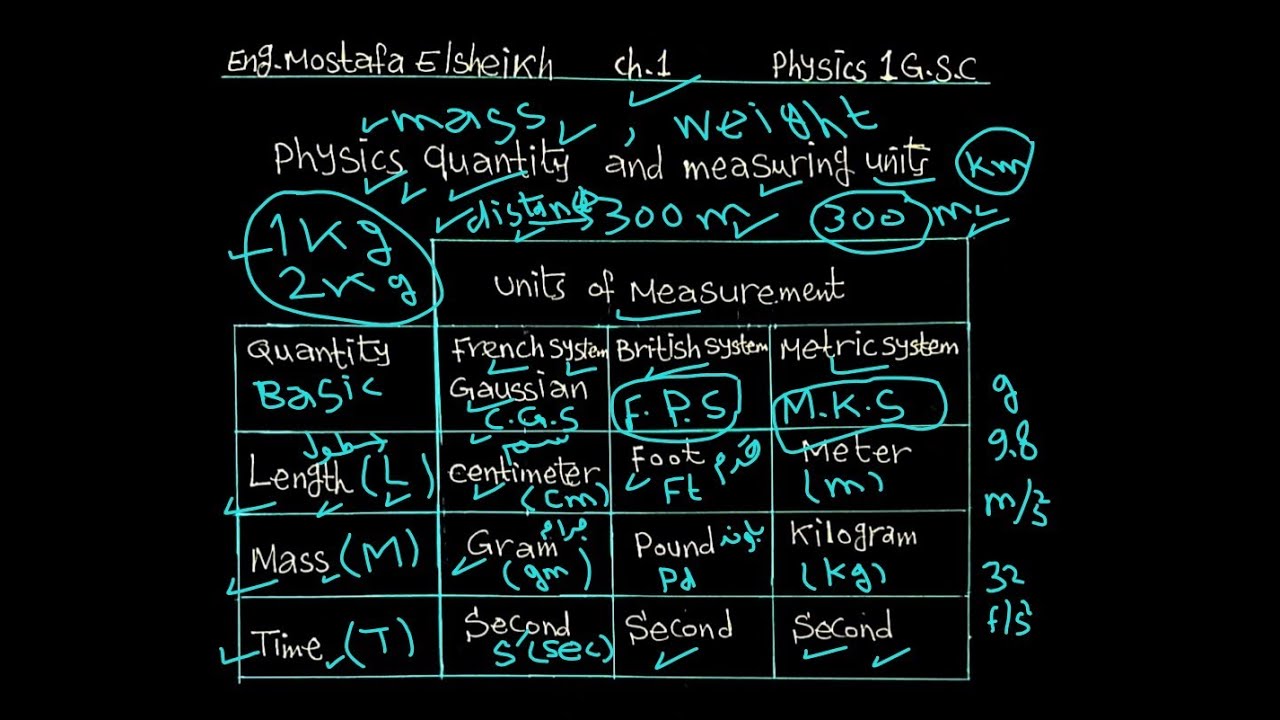 Eng.Mostafa Elsheikh ch.1 Physics 1 G.S.C
mass , weight
Physics quantity and measuring units km
distance 300 m 300 m
1Kg
2Kg
Units of Measurement
Quantity French system British system Metric system
Basic Gaussian F.P.S M.K.S g
C.G.S
طول سم قدم 9.8
Length (L) Centimeter Foot Meter
(Cm) Ft (m) m/s²
جرام باوند
Mass (M) Gram Pound Kilogram
(gm) Pd (kg) 32
f/s²
Time (T) Second Second Second
S (sec)